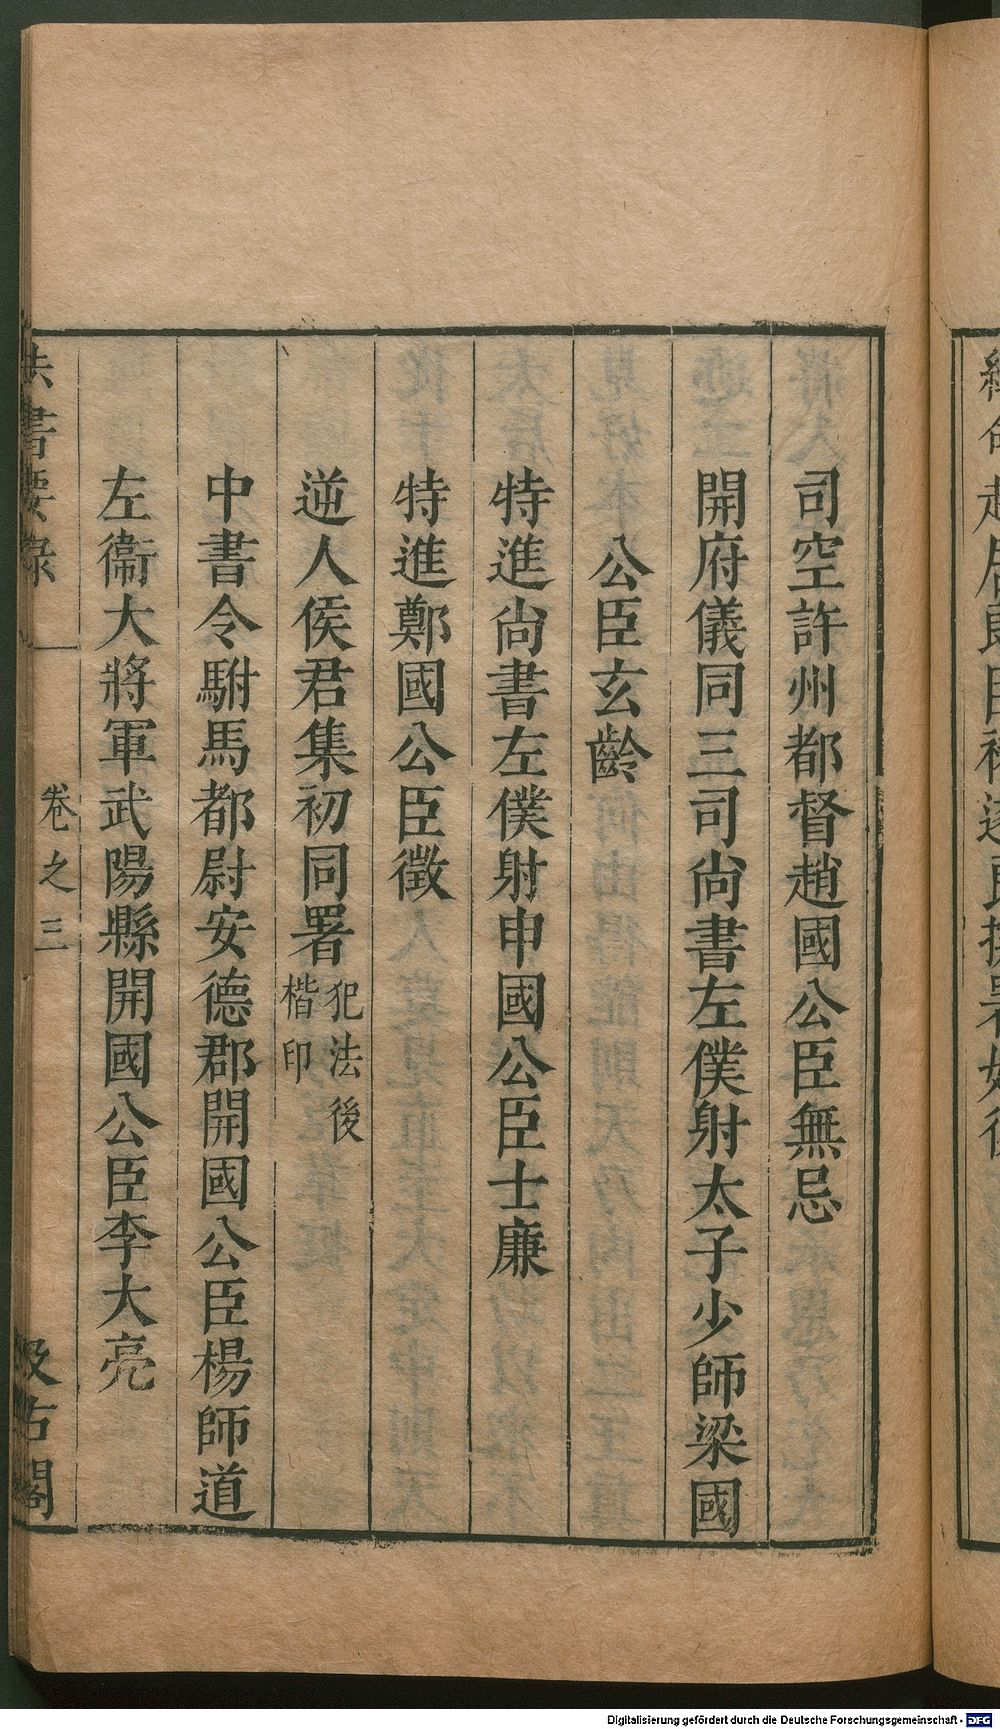 司空許州都督趙國公臣無忌
開府儀同三司尙書左僕射太子少師梁國
公臣玄齡
特進尙書左僕射申國公臣士廉
特進鄭國公臣徵
逆人侯君集初同署犯法後
楷印
中書令駙馬都尉安德郡開國公臣楊師道
左衞大將軍武陽縣開國公臣李大亮
法書要錄 卷之三 汲古閣
Digitalisierung gefördert durch die Deutsche Forschungsgemeinschaft - DFG